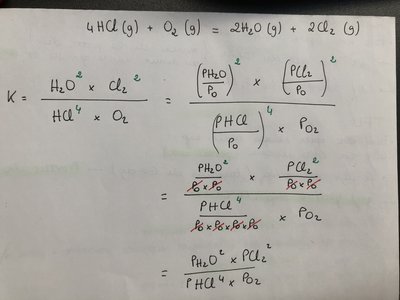 4HCl (g) + O₂ (g) = 2H₂O (g) + 2Cl₂ (g)
K = H₂O² × Cl₂² / HCl⁴ × O₂ = (PH₂O/P₀)² × (PCl₂/P₀)² / (PHCl/P₀)⁴ × PO₂
= PH₂O²/P₀×P₀ × PCl₂²/P₀×P₀ / PHCl⁴/P₀×P₀×P₀×P₀ × PO₂
= PH₂O² × PCl₂² / PHCl⁴ × PO₂